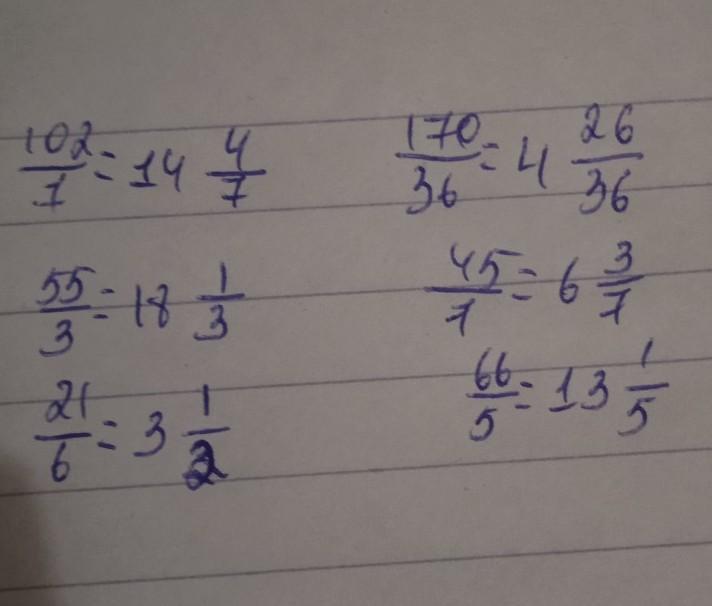 102/7 = 14 4/7    170/36 = 4 26/36
55/3 = 18 1/3    45/7 = 6 3/7
21/6 = 3 1/2    66/5 = 13 1/5